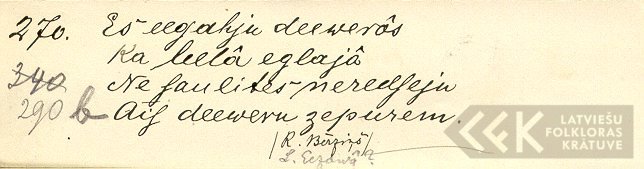 270. Es eegahju deewerôs
Ka leelâ eglajâ
340 Ne saulites neredseju
290 b Ais deeweru zepurem.
/R. Bērziņš/
L. Eezawâ?
LATVIEŠU
FOLKLORAS
KRĀTUVE